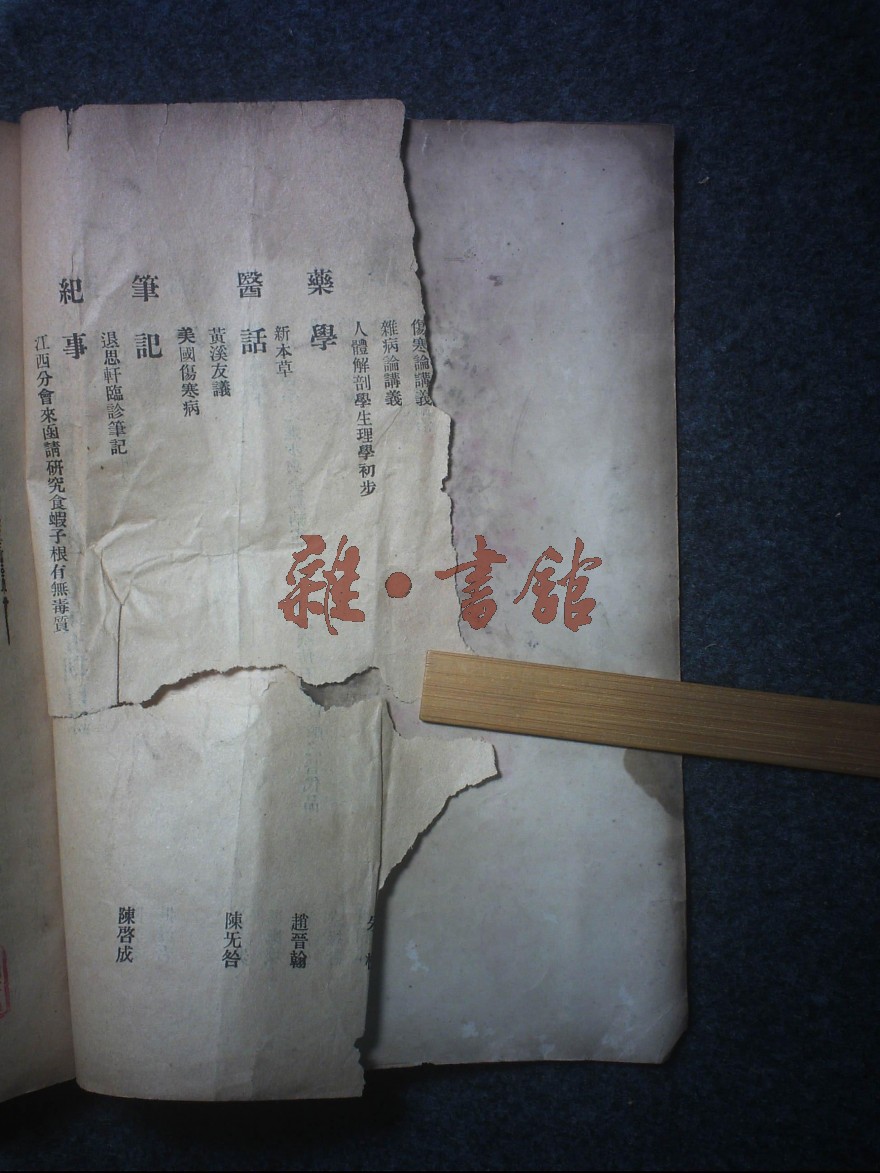 傷寒論講義
雜病論講義
人體解剖學生理學初步
藥學
新本草
趙晉翰
醫話
黃溪友議
陳无咎
美國傷寒病
筆記
退思軒臨診筆記
陳啓成
紀事
江西分會來函請研究食蝦子根有無毒質
雜·書館